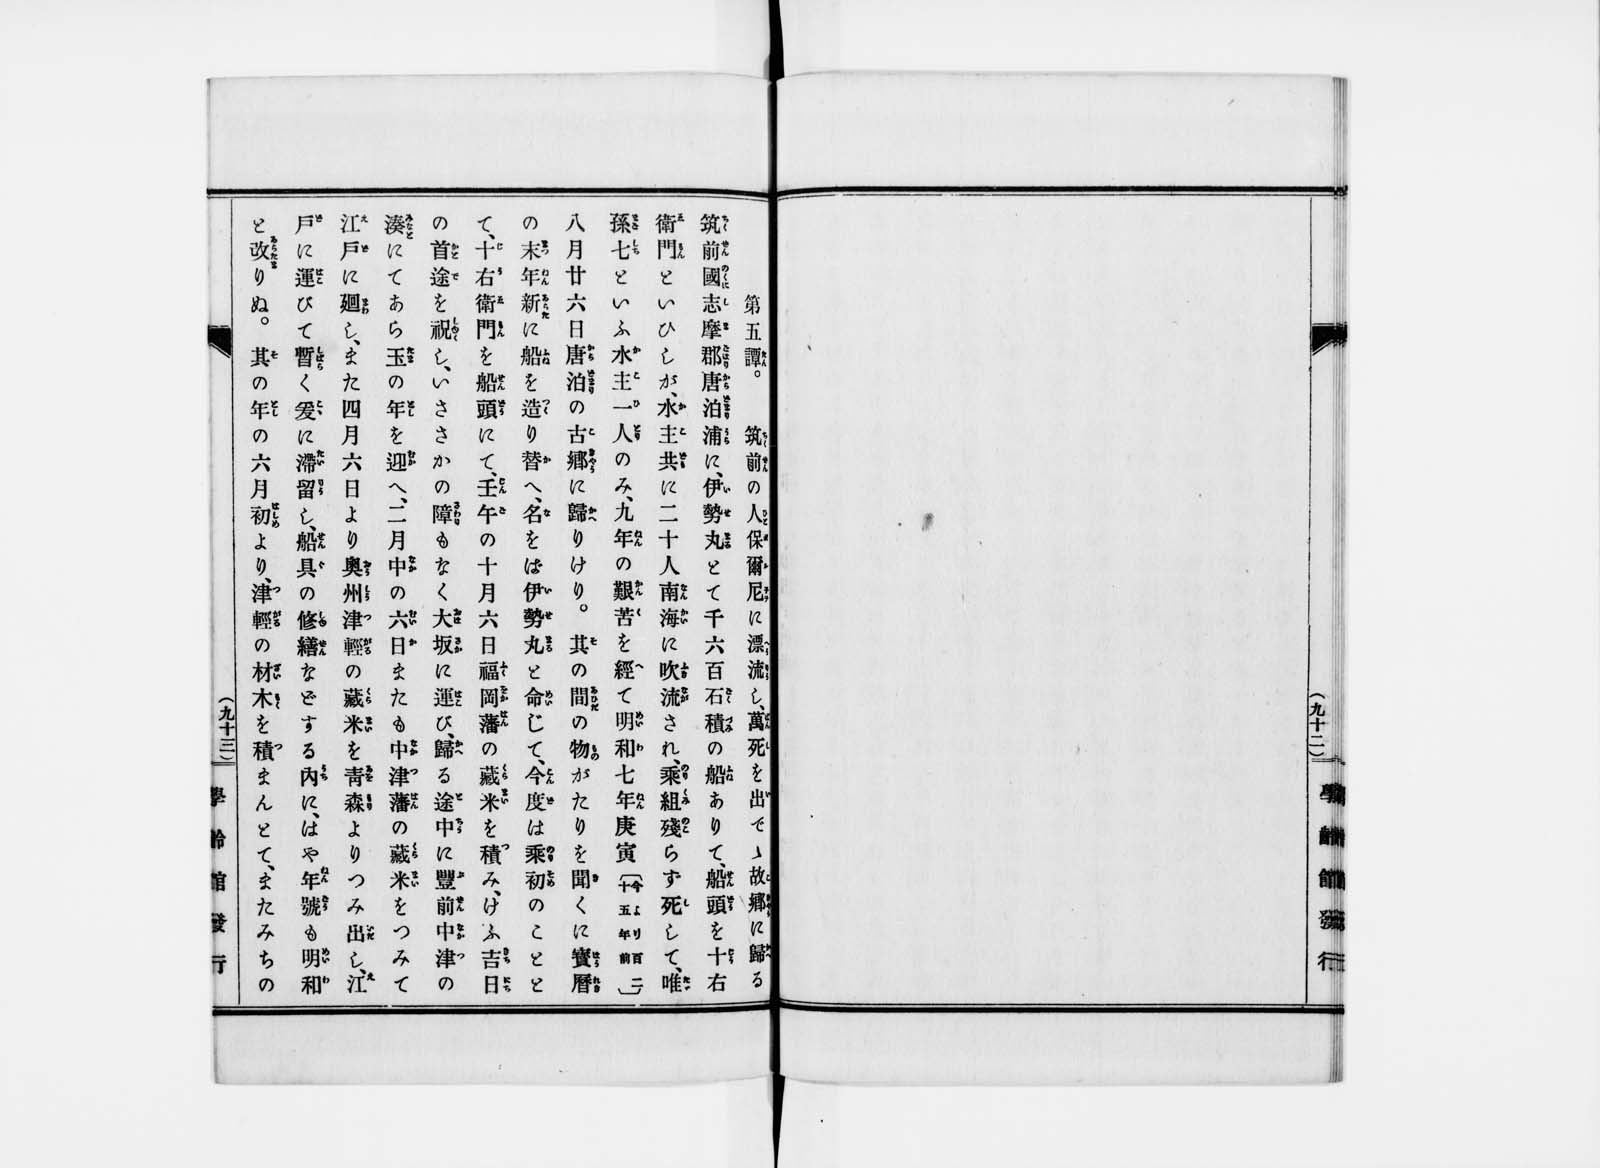 （九十二）
學齡館發行
第五譚。　筑前の人保爾尼に漂流し、萬死を出でゝ故郷に歸る
筑前國志摩郡唐泊浦に、伊勢丸とて千六百石積の船ありて、船頭を十右
衛門といひしが、水主共に二十人南海に吹流され、乘組殘らず死して、唯
孫七といふ水主一人のみ、九年の艱苦を經て明和七年庚寅〔今より百二十五年前〕
八月廿六日唐泊の古郷に歸りけり。其の間の物がたりを聞くに寶曆
の末年新に船を造り替へ、名をば伊勢丸と命じて、今度は乘初のことと
て、十右衛門を船頭にて、壬午の十月六日福岡藩の藏米を積み、けふ吉日
の首途を祝し、いささかの障もなく大坂に運び、歸る途中に豐前中津の
湊にてあら玉の年を迎へ、二月中の六日またも中津藩の藏米をつみて
江戸に廻し、また四月六日より奧州津輕の藏米を靑森よりつみ出し、江
戸に運びて暫く爰に滯留し、船具の修繕などする內に、はや年號も明和
と改りぬ。其の年の六月初より、津輕の材木を積まんとて、またみちの
（九十三）
學齡館發行